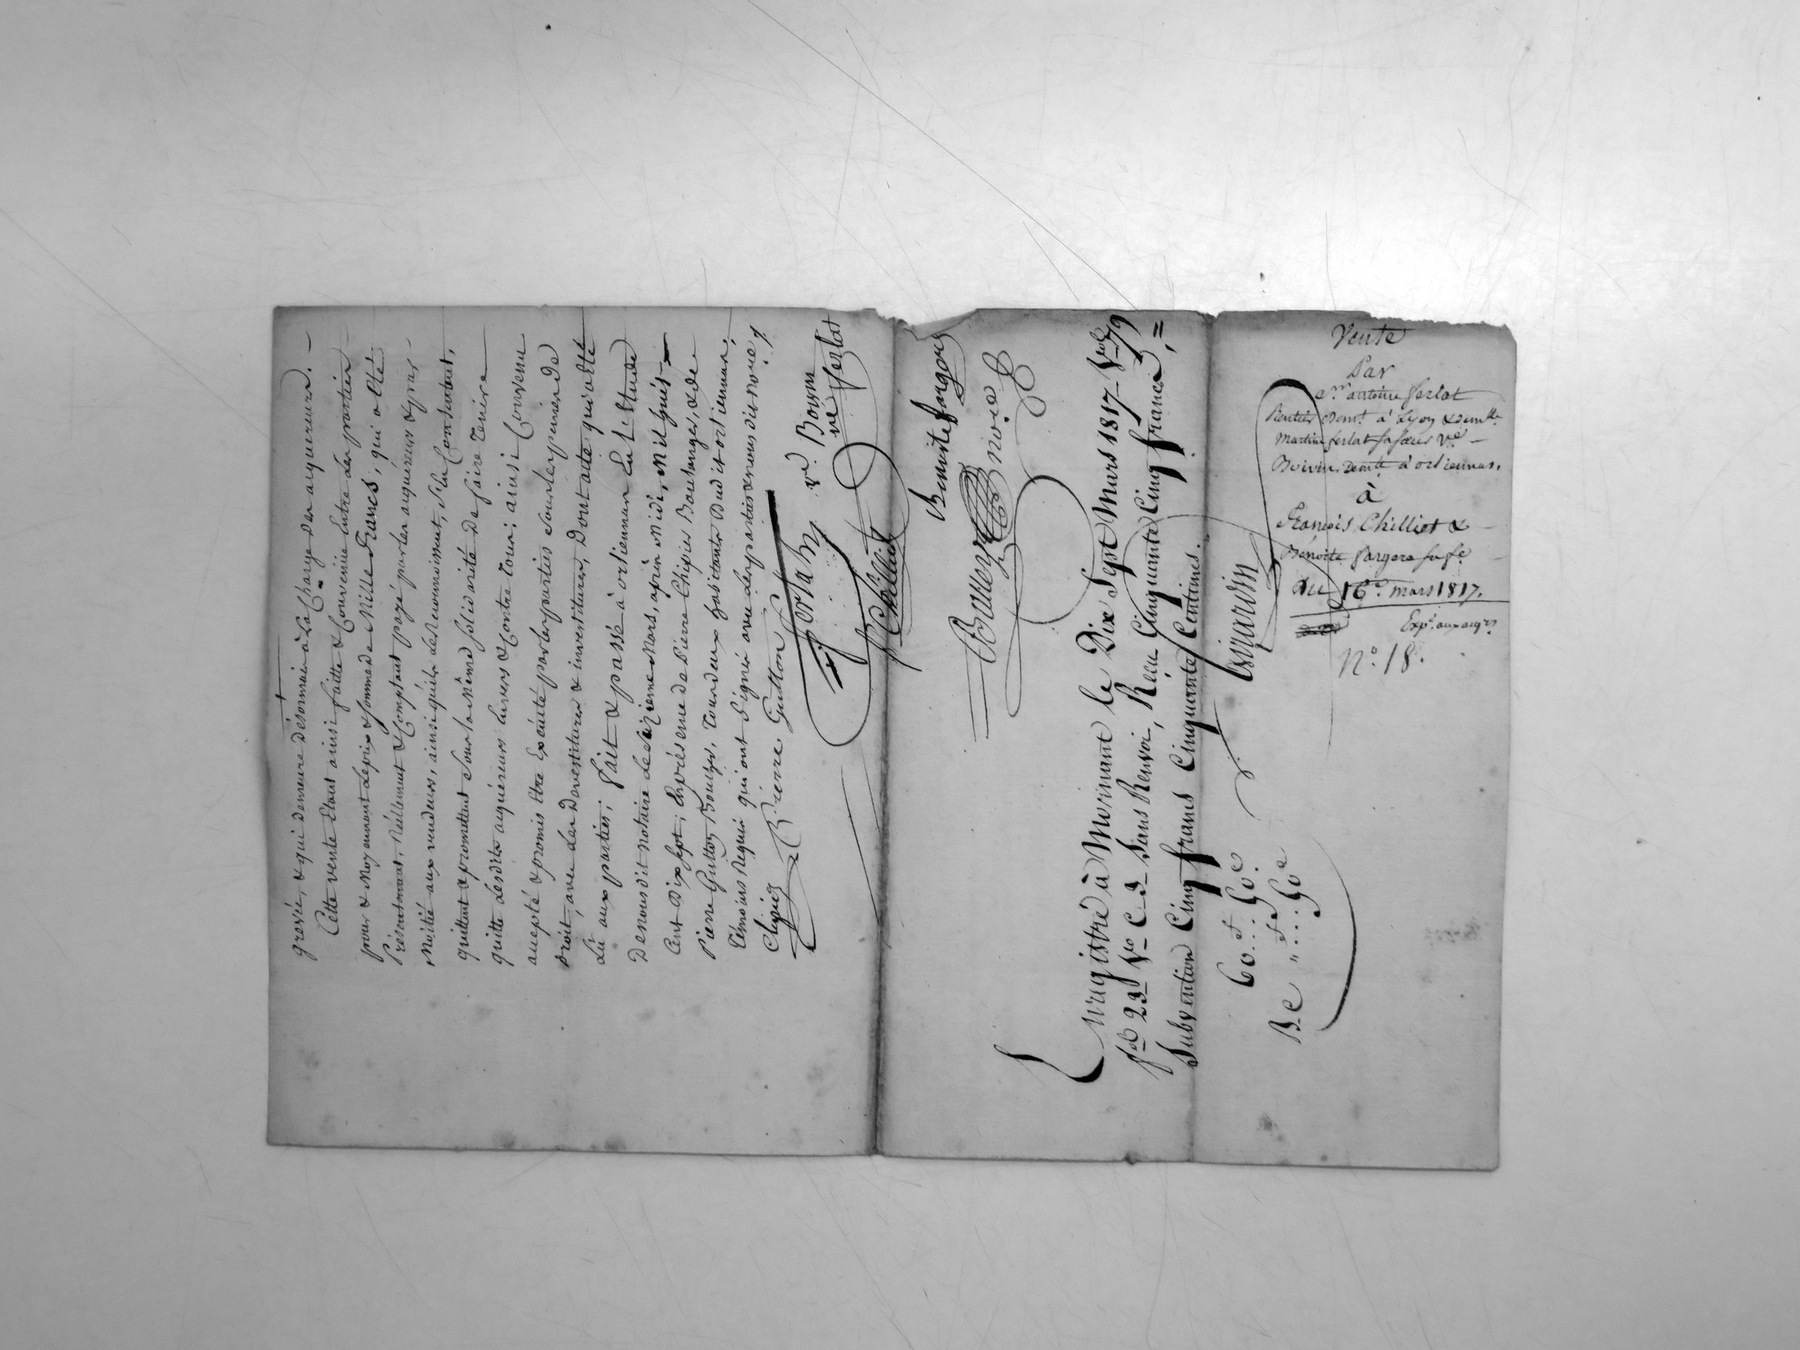 grevée, & qui demeure désormais à la Charge des acquereurs. —
Cette vente étant ainsi faitte & Convenüe Entre les parties
pour & Moyennant le prix & Somme de Mille Francs, qui a été
présentement, Réellement & Comptant payé par les acquéreurs & par
Moitié aux vendeurs, ainsi qu'ils le Reconnoissent, s'en Contentent,
quittent & promettent sous la même solidarité de faire tenire
quitte lesdits acquéreurs Envers & Contre tous: ainsi Convenu
accepté & promis Etre Exécuté par les parties sous les peines de
Droit, avec les Devestitures & investitures, Dont acte qui a Eté
Lû aux parties; fait & passé à orliennas En L'Etude
De nous dit Notaire le seizieme Mars, après Midi, Mil huit—
Cent Dix Sept; En présence de Pierre Clapier Boulanger, & de
Pierre Gutton Bouiller, tous deux habitants dud it orliennas,
Témoins Requis qui ont signé avec les parties & nous dit Noire ./.
Clapier Pierre Gutton ferlat ve. Boivin
née ferlat
f Chilliet Benoite fargere
Nore
Enregistré à Mornant le Dix Sept Mars 1817 Vol. 79
fol 23 Vo C.3 Sans Renvoi, Reçu Cinquante Cinq francs, =
Subvention Cinq francs Cinquante Centimes.
60.f..50.c
Be „...50 c
Vente
Par
Sr. antoine ferlat
Rentier demt. à Lyon & demlle
Martine ferlat sa sœur Ve. —
Boivin demte à orliennas,
à
François Chilliet & —
Bénoite fargere sa fe
du 16e. mars 1817.
Expn. aux acqrs
N°. 18.